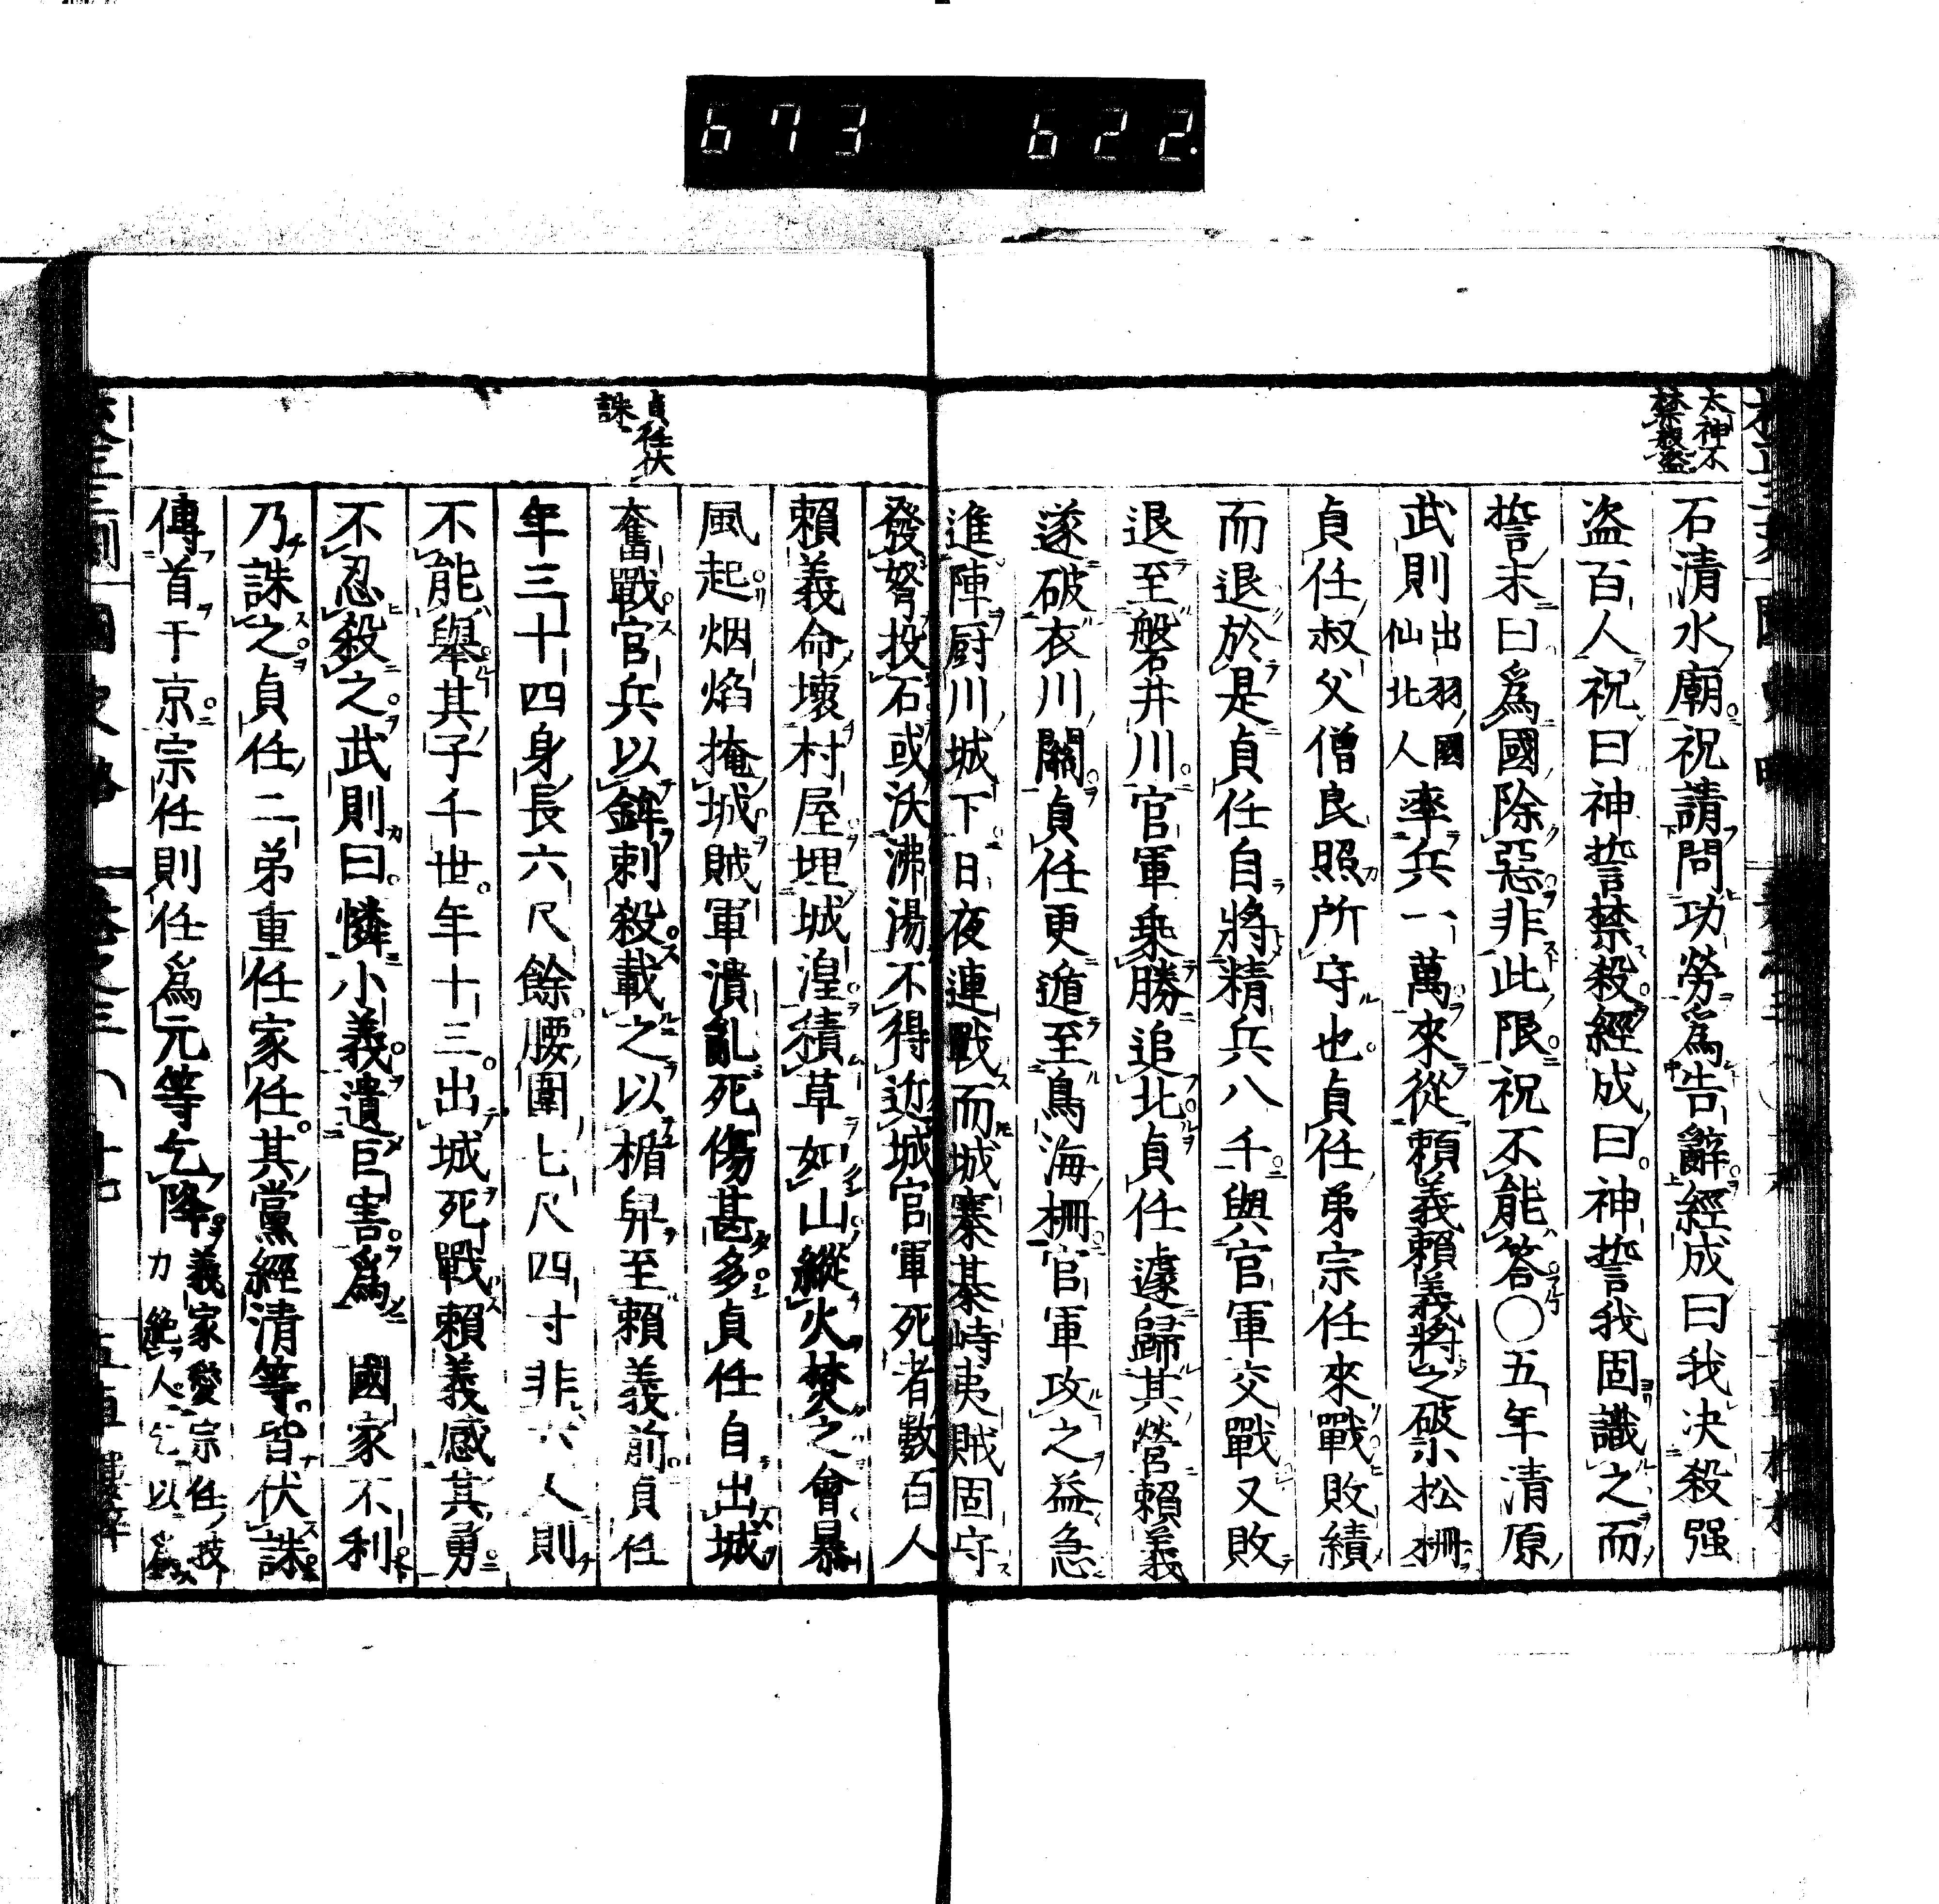 673 622.
太神不
禁殺盗
石清水廟祝請問功勞爲告辭經成曰我决殺强
盗百人祝曰神誓禁殺經成曰神誓我固識之而
誓末曰爲國除惡非此限祝不能答〇五年清原
武則出羽國仙北人率兵一萬來從頼義頼義將之破小松柵
貞任叔父僧良照所守也貞任弟宗任來戰敗績
而退於是貞任自將精兵八千與官軍交戰又敗
退至磐井川官軍乗勝追北貞任遽歸其營頼義
遂破衣川關貞任更遁至鳥海柵官軍攻之益急
進陣厨川城下日夜連戰而城寨棊峙夷賊固守
貞任伏
誅
發弩投石或沃沸湯不得近城官軍死者數百人
頼義命壞村屋埋城湟積草如山縱火焚之會暴
風起烟焰掩城賊軍潰亂死傷甚多貞任自出城
奮戰官兵以鉾刺殺載之以楯舁至頼義前貞任
年三十四身長六尺餘腰圍七尺四寸非六人則
不能舉其子千世年十三出城死戰頼義感其勇
不忍殺之武則曰憐小義遺巨害爲 國家不利
乃誅之貞任二弟重任家任其黨經清等皆伏誅
傳首于京宗任則任爲元等乞降義家愛宗任技力絶人乞以